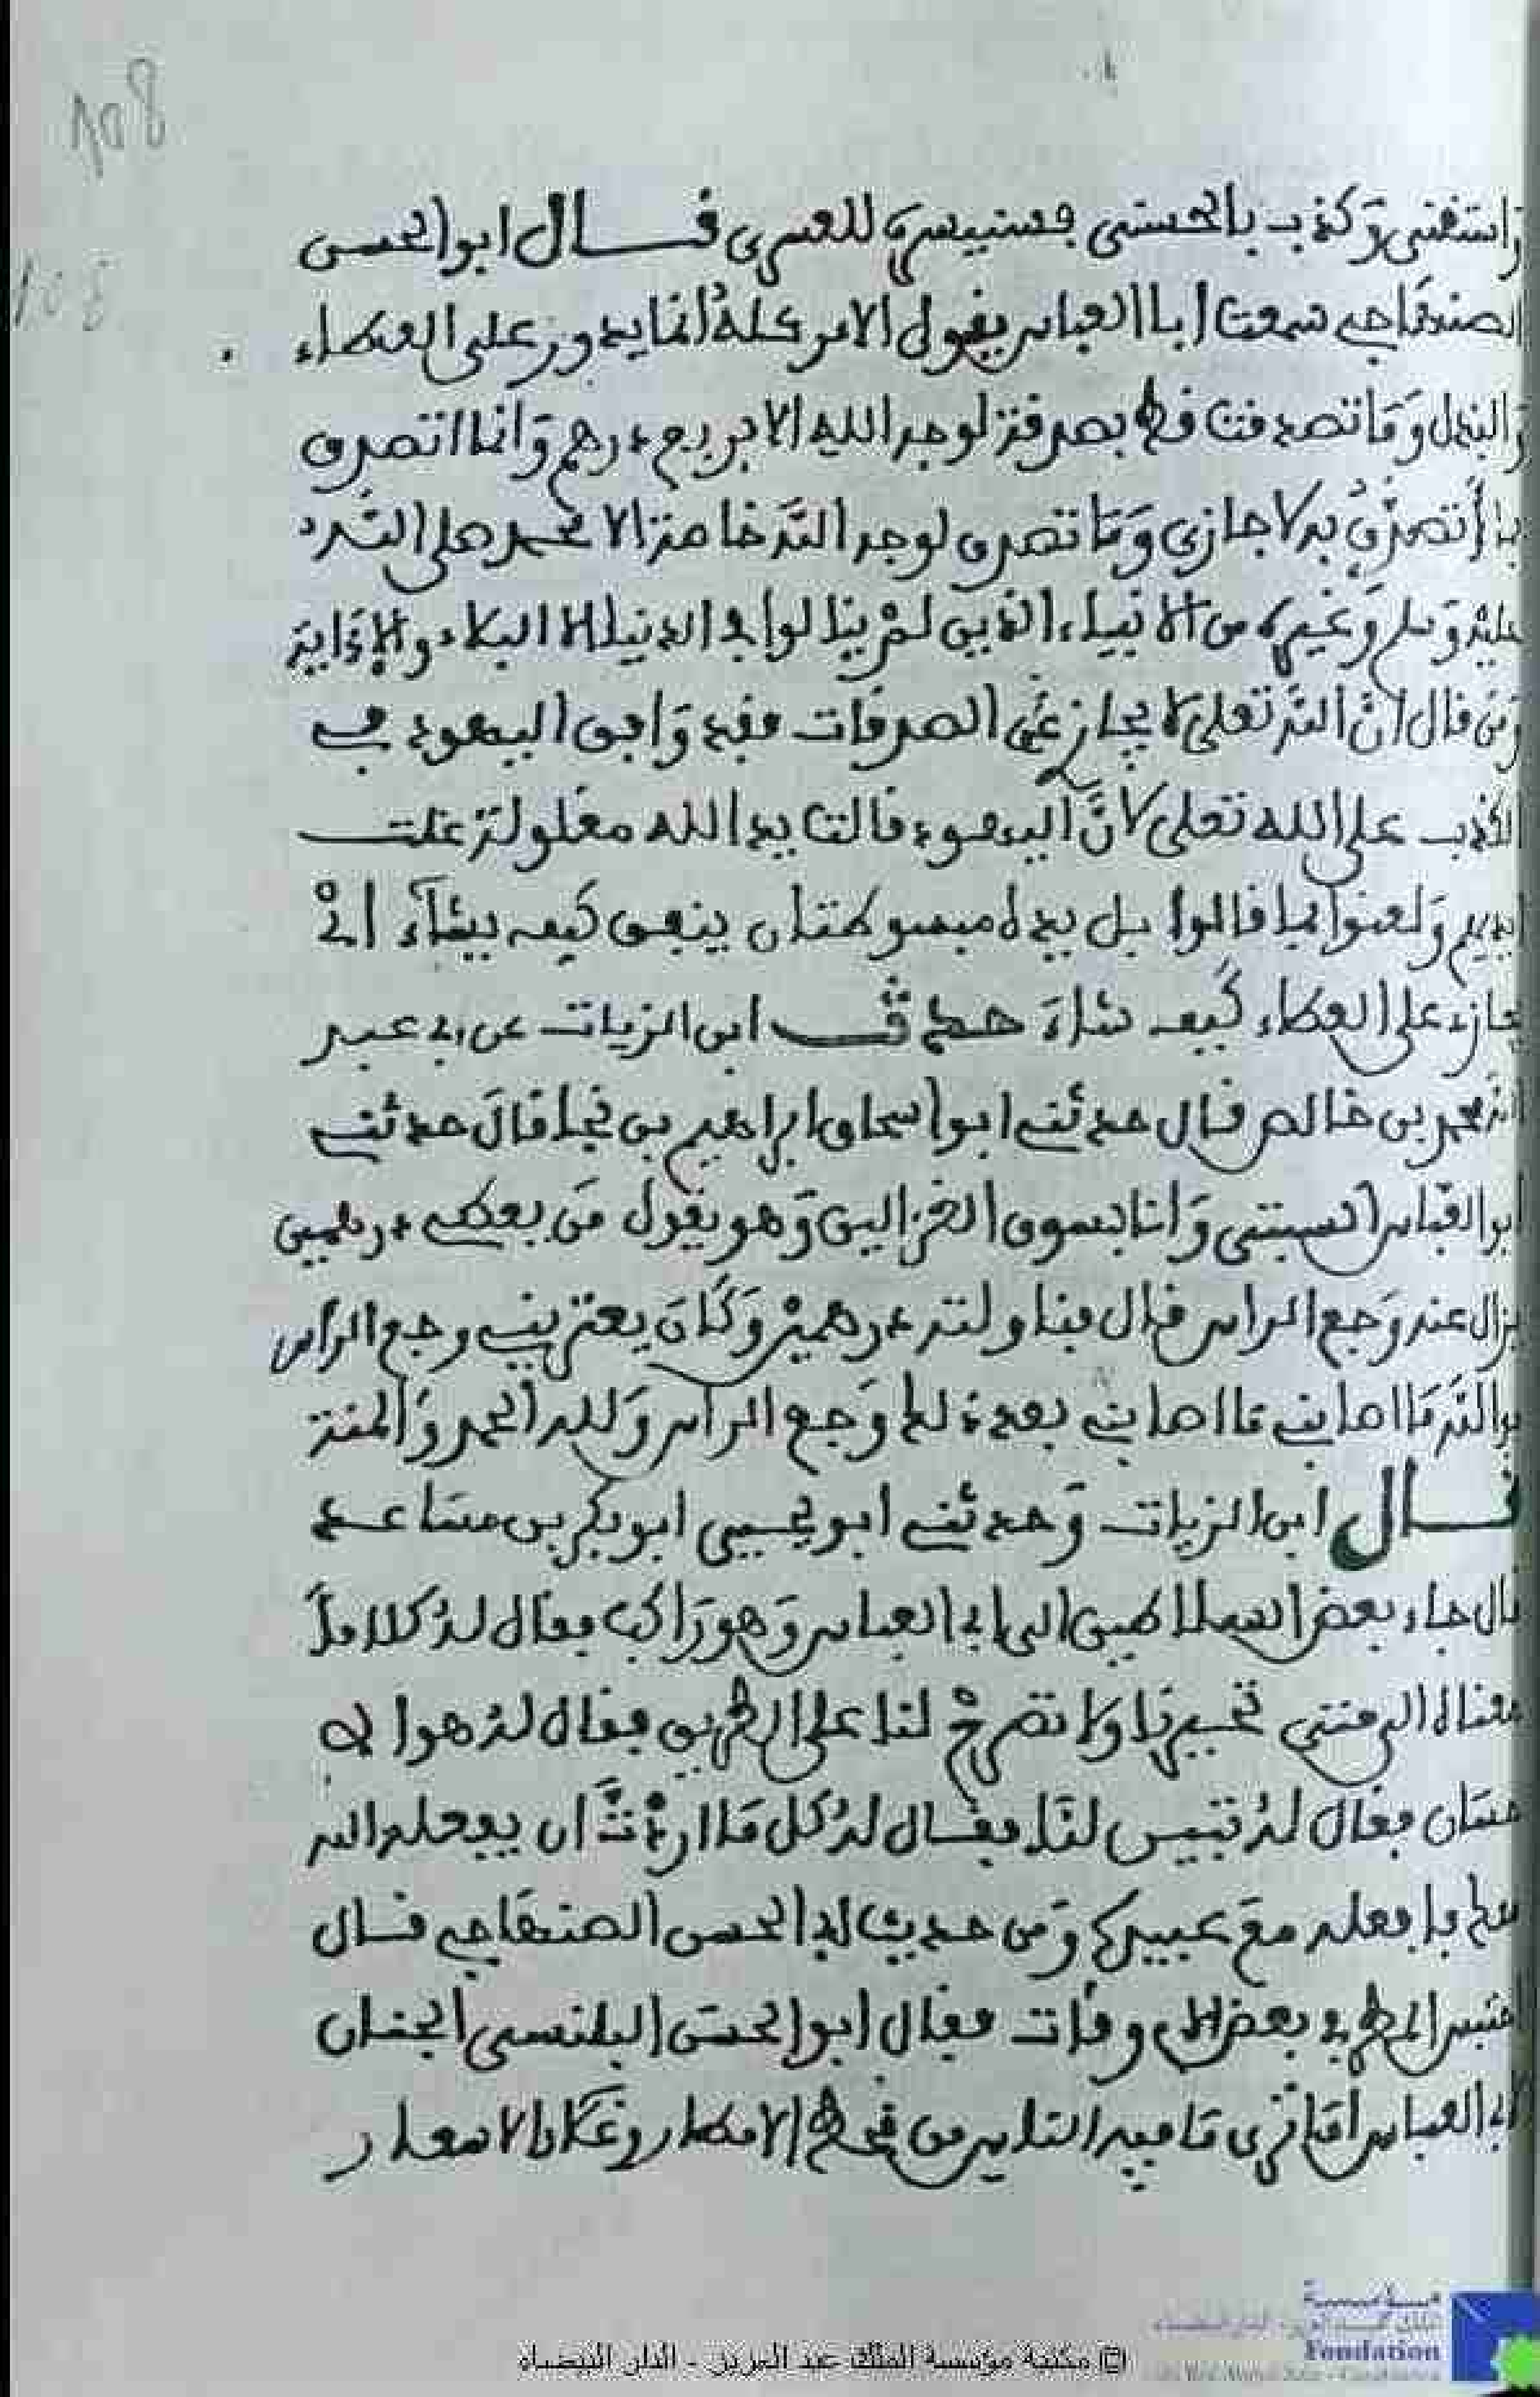 108
108
واستغنى وكذب بالحسنى فسنيسره للعسرى قال ابو الحسن
الصنهاجي سمعت ابا العباس يقول الامر كله انما يدور على العطاء
والبخل وما تصدقت قط بصدقة لوجه الله الا بربع درهم وانما اتصدق
بما أتصدق به لاجازى وما تصدق لوجه الله خاصة الا محمد صلى الله
عليه وسلم وغيره من الانبياء الذين لم ينالوا في الدنيا الا البلاء والاذاية
ومن قال ان الله تعلى لا يجازي على الصدقات فقد وافق اليهود في
الكذب على الله تعلى لان اليهود قالت يد الله مغلولة غلت
ايديهم ولعنوا بما قالوا بل يداه مبسوطتان ينفق كيف يشآء اي
يجازي على العطاء كيف شاء حدث ابن الزيات عن ابي عبد
الله محمد بن خالص قال حدثني ابو اسحاق ابراهيم بن قال حدثني
ابو العباس السبتي وانا بسوق الغزالين وهو يقول من يعطي درهمين
يزال عنه وجع الراس قال فناولته درهمين وكان يعتريني وجع الراس
فوالله ما اصابني بعد ذلك وجع الراس ولله الحمد والمنة
قال ابن الزيات وحدثني ابو يحيى ابو بكر بن مساعد
قال جاء بعض السلاطين الى ابي العباس وهو راكب فقال له كلاما
معناه الى متى تحيرنا ولا تصرح لنا على الطريق فقال له هو الا
حسان فقال له تبين لنا فقال له كل ما اردت ان يفعله الله
معك فافعله مع عبيده ومن حديث ابي الحسن الصنهاجي قال
احتبس المطر في بعض الاوقات فقال ابو الحسن البلنسي الجنان
لابي العباس اما ترى ما فيه الناس من قحط الامطار وغلاء الاسعار
© مكتبة مؤسسة الملك عبد العزيز - الدار البيضاء
Fondation